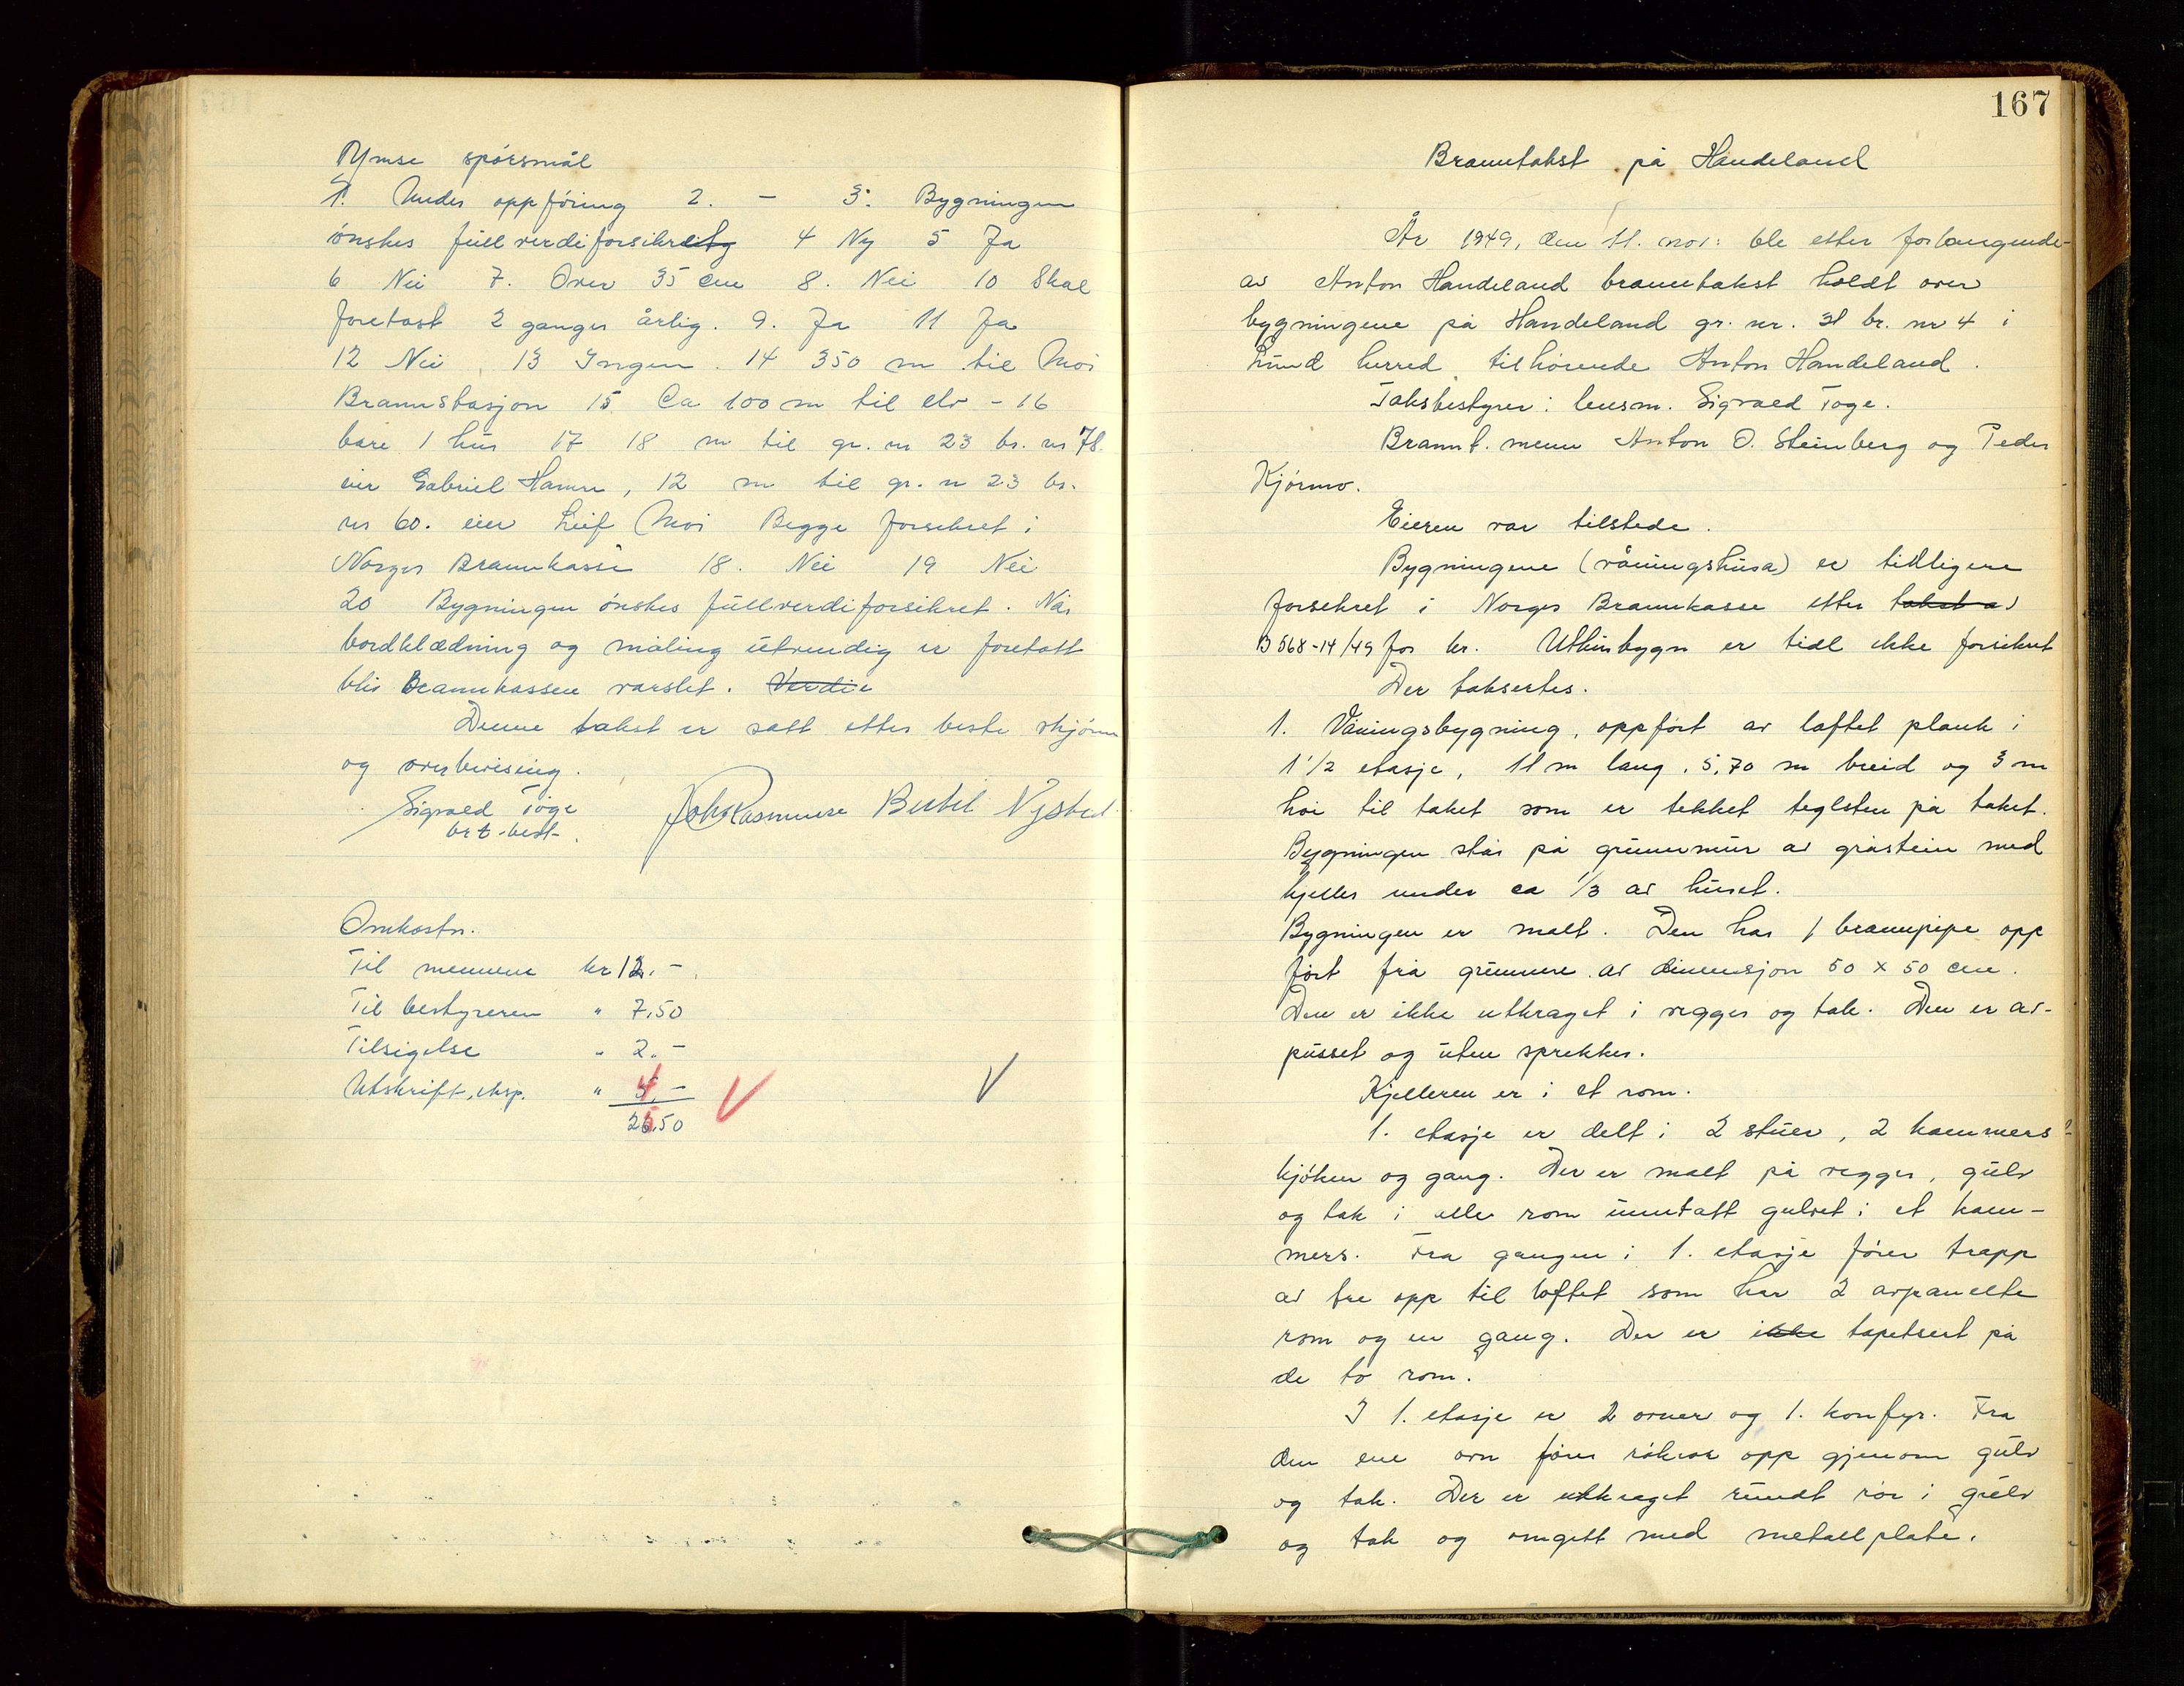 Ymse spørsmål
1. Under oppføring 2. - 3. Bygningen
ønskes fullverdiforsikret 4 Ny 5 Ja
6 Nei 7. Over 35 cm 8. Nei 10 Skal
foretast 2 ganger årlig. 9. Ja 11 Ja
12 Nei 13 Ingen. 14 350 m til Moi
Brannstasjon 15. Ca 100 m til elv - 16
bare 1 hus 17 18 m til gr. nr 23 br. nr 78.
eier Gabriel Hamre, 12 m til gr. n 23 br.
nr 60. eier Leif Moi Begge forsikret i
Norges Brannkasse 18. Nei 19 Nei
20 Bygningen ønskes fullverdiforsikret. Når
bordklædning og maling utvendig er foretatt
blir Brannkassen varslet. Verdie
Denne takst er satt etter beste skjønn
og overbevising.
Sigvald Toge Joh Rasmussen Bertil Nystad
brt-best-.
Omkostn.
Til mennene kr 12.-
Til bestyreren " 7,50
Tilsigelse " 2.-
Utskrift, eksp. " 4.-
25.50
167
Branntakst på Handeland
År 1949, den 11. nov: ble etter forlangende
av Anton Handeland branntakst holdt over
bygningene på Handeland gr. nr. 31 br. nr 4 i
Lund herred tilhørende Anton Handeland.
Taksbestyrer: lensm. Sigvald Toge.
Brannt. menn Anton O. Steinberg og Peder
Kjørmo.
Eieren var tilstede.
Bygningene (våningshusa) er tidligere
forsikret i Norges Brannkasse etter takst av
B 568-14/49 for kr. Uthusbygn er tidl ikke forsikret
Der taksertes.
1. Våningsbygning, oppført av laftet plank i
1 1/2 etasje, 11 m lang, 5,70 m breid og 3 m
høi til taket som er tekket teglsten på taket.
Bygningen står på grunnmur av gråstein med
kjeller under ca 1/3 av huset.
Bygningen er malt. Den har 1 brannpipe opp
ført fra grunnen av dimensjon 50 x 50 cm.
Den er ikke utkraget i vegger og tak. Den er av-
pusset og uten sprekker.
Kjelleren er i et rom.
1. etasje er delt i 2 stuer, 2 kammers
kjøken og gang. Der er malt på vegger, gulv
og tak i alle rom unntatt gulvet i et kam-
mers. Fra gangen i 1. etasje fører trapp
av tre opp til loftet som har 2 avpanelte
rom og en gang. Der er ikke tapetsert på
de to rom.
I 1. etasje er 2 ovner og 1. komfyr. Fra
den ene ovn fører røkrør opp gjenom gulv
og tak. Der er utkraget rundt rør i gulv
og tak og omgitt med metallplate.